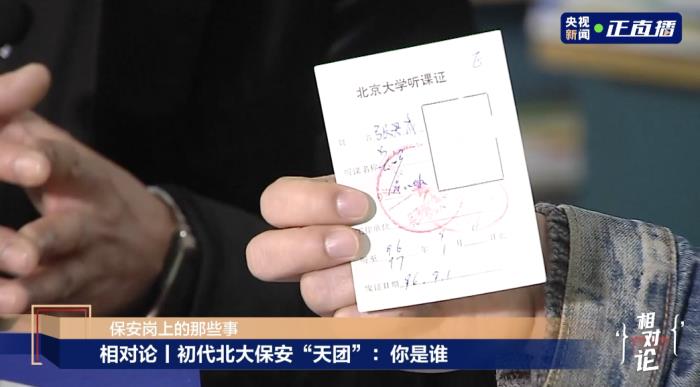 央视新闻 正直播
正
北京大学听课证
听课名称
96年
97 1月
发证日期 96.9.1
保安岗上的那些事
相对论丨初代北大保安“天团”：你是谁
相对论